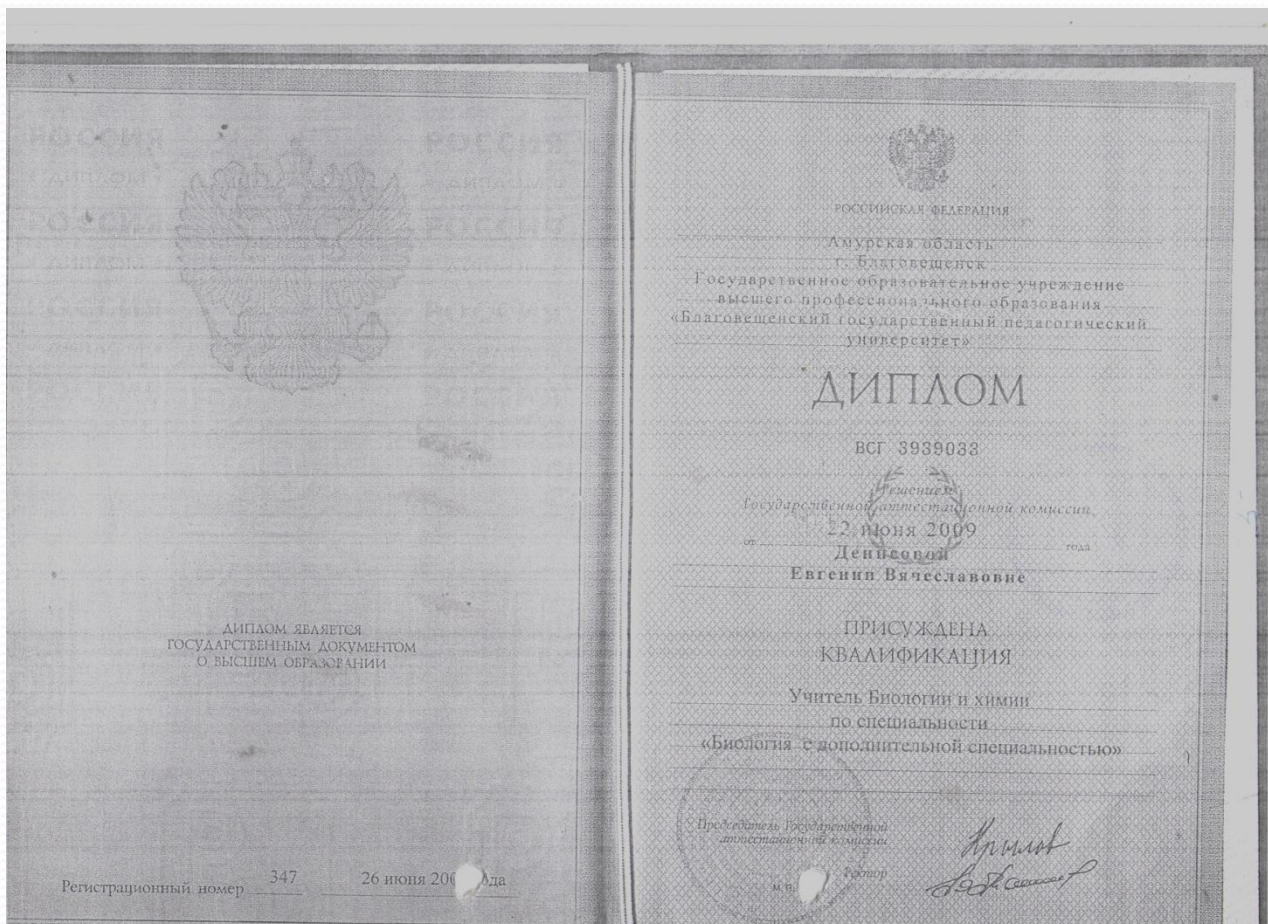 РОССИЯ РОССИЯ
РОССИЯ РОССИЯ
ДИПЛОМ ЯВЛЯЕТСЯ
ГОСУДАРСТВЕННЫМ ДОКУМЕНТОМ
О ВЫСШЕМ ОБРАЗОВАНИИ
Регистрационный номер 347 26 июня 200 да
РОССИЙСКАЯ ФЕДЕРАЦИЯ
Амурская область
г. Благовещенск
Государственное образовательное учреждение
высшего профессионального образования
«Благовещенский государственный педагогический
университет»
ДИПЛОМ
ВСГ 3939033
Решением
Государственной аттестационной комиссии
от 22 июня 2009 года
Денисовой
Евгении Вячеславовне
ПРИСУЖДЕНА
КВАЛИФИКАЦИЯ
Учитель Биологии и химии
по специальности
«Биология с дополнительной специальностью»
Председатель Государственной
аттестационной комиссии
Крылов
Ректор
М.П.